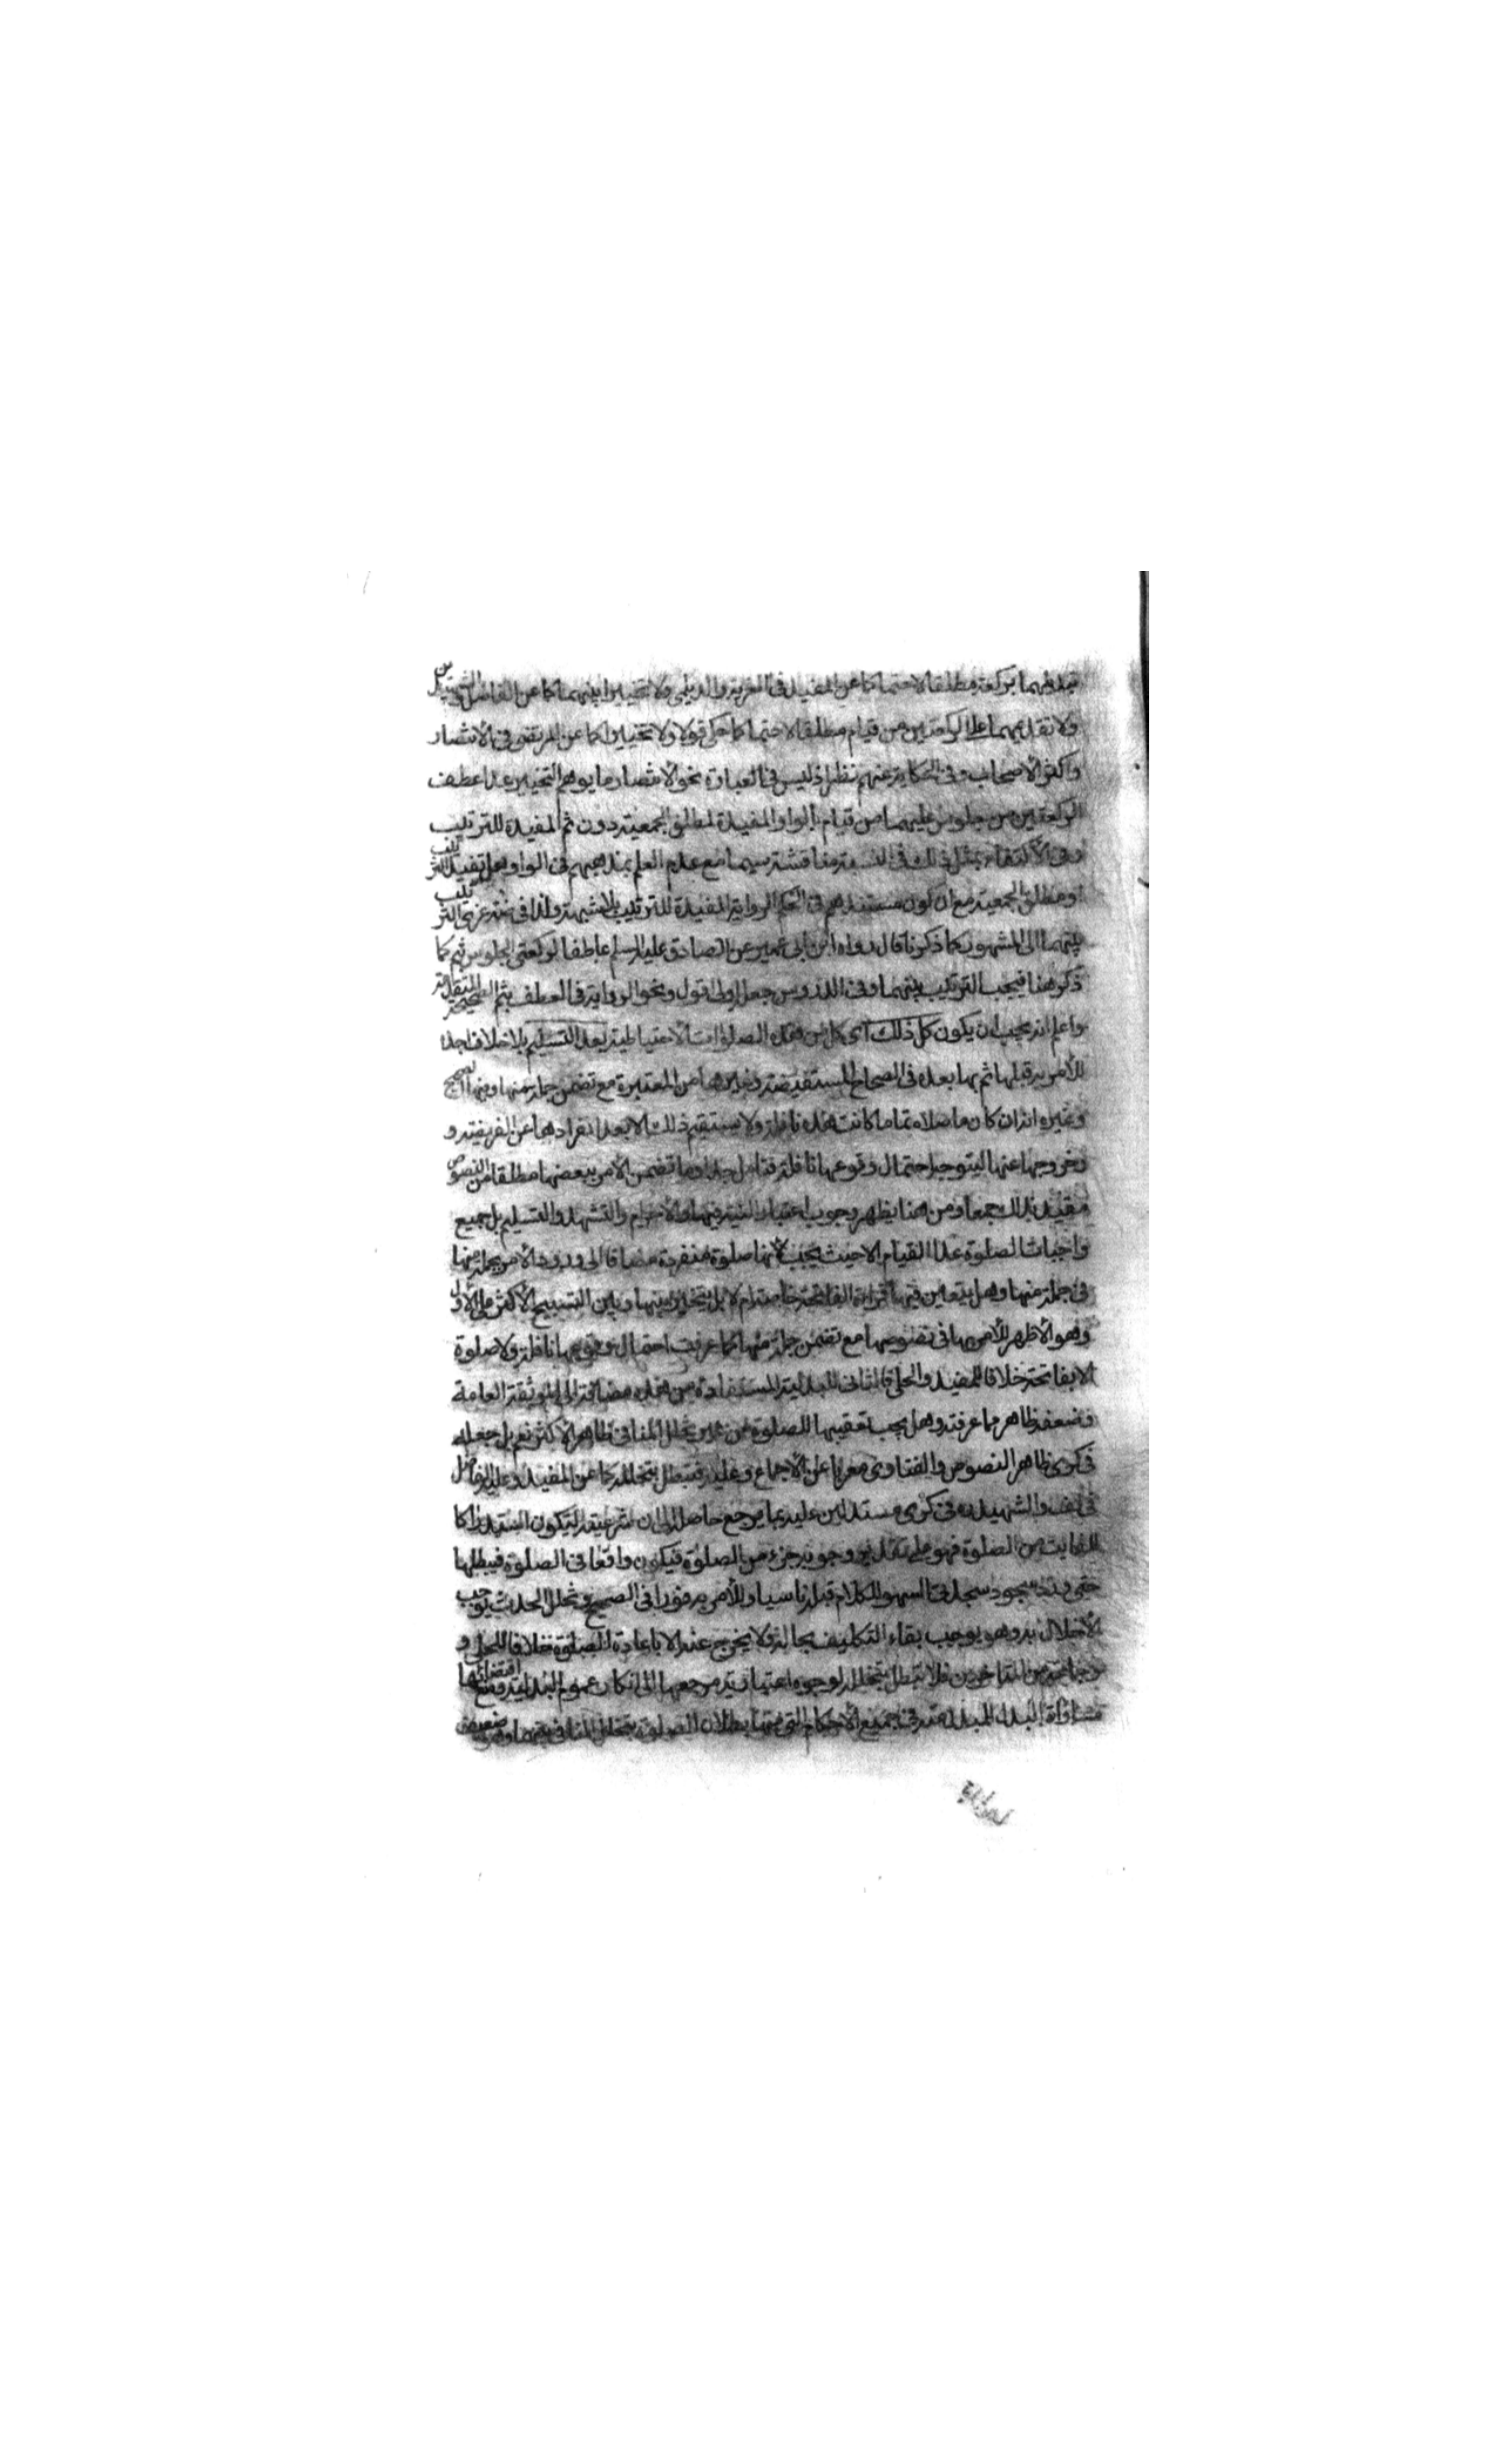 تبديلهما بركعة مطلقا لا حتما كما عن المفيد في الغرية والديلمي ولا تخييرا بينهما كما عن الفاضل
ولا تقديمهما على الركعتين من قيام مطلقا لا حتما كما حكى قولا ولا تخييرا كما عن المرتضى في الانتصار
واكثر الاصحاب وفي الحكاية عنهم نظر اذ ليس في العبارة نحو الانتصار ما يوهم التخيير عدا عطف
الركعتين من جلوس عليهما من قيام بالواو المفيدة لمطلق الجمعية دون ثم المفيدة للترتيب
وفي الاكتفاء بمثل ذلك في النسبة مناقشة سيما مع عدم العلم بمذهبهم في الواو وهل تفيد الترتيب
او مطلق الجمعية مع ان كون مستندهم في الحكم الرواية المفيدة للترتيب بلا شبهة ولذا في عزى الترتيب
بينهما الى المشهور كما ذكرنا قال رواه ابن ابي عمير عن الصادق عليه السلم عاطفا لركعتي الجلوس بثم كما
ذكر هنا فيجب الترتيب بينهما وفي الدروس جعله اولى اقول ونحو الرواية في العطف بثم الصحيحة
واعلم انه يجب ان يكون كل ذلك اى كل من هذه الصلوات الاحتياطية بعد التسليم بلا خلاف اجده
للأمر به قبلها ثم بها بعده في الصحاح المستفيضة وغيرها من المعتبرة مع تضمن جملة منها وفيها الصحيح
وغيره انه ان كان ما صلاه تماما كانت هذه نافلة ولا يستقيم ذلك الا بعد انفرادها عن الفريضة و
وخروجها عنها ليتوجه احتمال وقوعها نافلة فتامل جدا وما تضمن الأمر ببعضها مطلقا من النصوص
مقيد بذلك جمعا ومن هنا يظهر وجوب اعتبار النية فيها والاحرام والتشهد والتسليم بل جميع
واجبات الصلوة عدا القيام الا حيث يجب لأنها صلوة منفردة مضافا الى ورود الأمر بجملة منها
في جملة منها وهل يتعين فيها قراءة الفاتحة خاصة ام لا بل يتخير بينها وبين التسبيح الأكثر على الأول
وهو الأظهر للأمر بها في نصوصها مع تضمن جملة منها كما عرفت احتمال وقوعها نافلة ولا صلوة
الا بفاتحة خلافا للمفيد والحلي فالثاني للبدلية المستفادة من هذه مضافة الى الموثقة العامة
وضعفه ظاهر مما عرفته وهل يجب تعقيبها للصلوة من غير تخلل المنافي ظاهر الأكثر نعم بل جعله
في كرى ظاهر النصوص والفتاوى معربا عن الاجماع وعليه فتبطل بتخلله كما عن المفيد وعليه الفاضل
في لف والشهيد ره في كرى مستدلين عليه بما يرجع حاصله الى ان شرعيته ليكون استدراكا
للفايت من الصلوة فهو على تقدير وجوبه جزء من الصلوة فيكون واقعا في الصلوة فيبطلها
حتى ورد سجود سجدتى السهو للكلام قبله ناسيا وللأمر به فورا في الصحيح وتخلل الحدث يوجب
الأخلال به وهو يوجب بقاء التكليف بحاله ولا يخرج عنه الا باعادة الصلوة خلافا للحلي و
وجماعة من المتاخرين فلا تبطل بتخلله لوجوه اعتبارية مرجعها الى انكار عموم البدلية ومنع اقتضائها
مساواة البدل للمبدل منه في جميع الأحكام التي منها بطلان الصلوة بتخلل المنافي بينهما وهو ضعيف